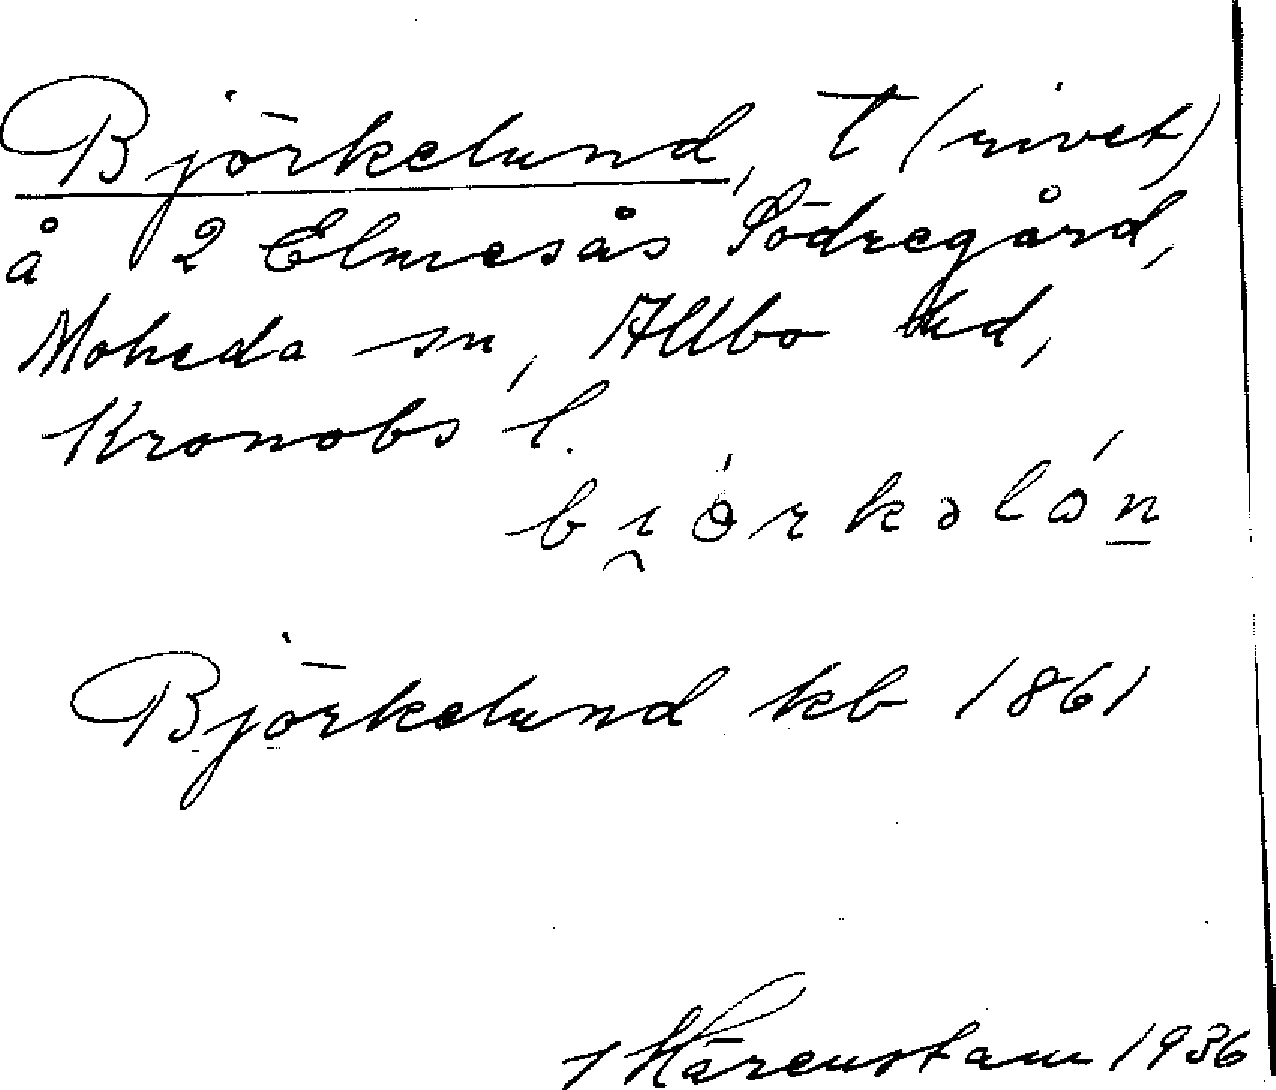 Björkelund, T (rivet)
å 2 Elmesås Södregård,
Moheda sn, Allbo hd,
Kronobs l.
bi̯órkəlón
Björkelund kb 1861
Härenstam 1936